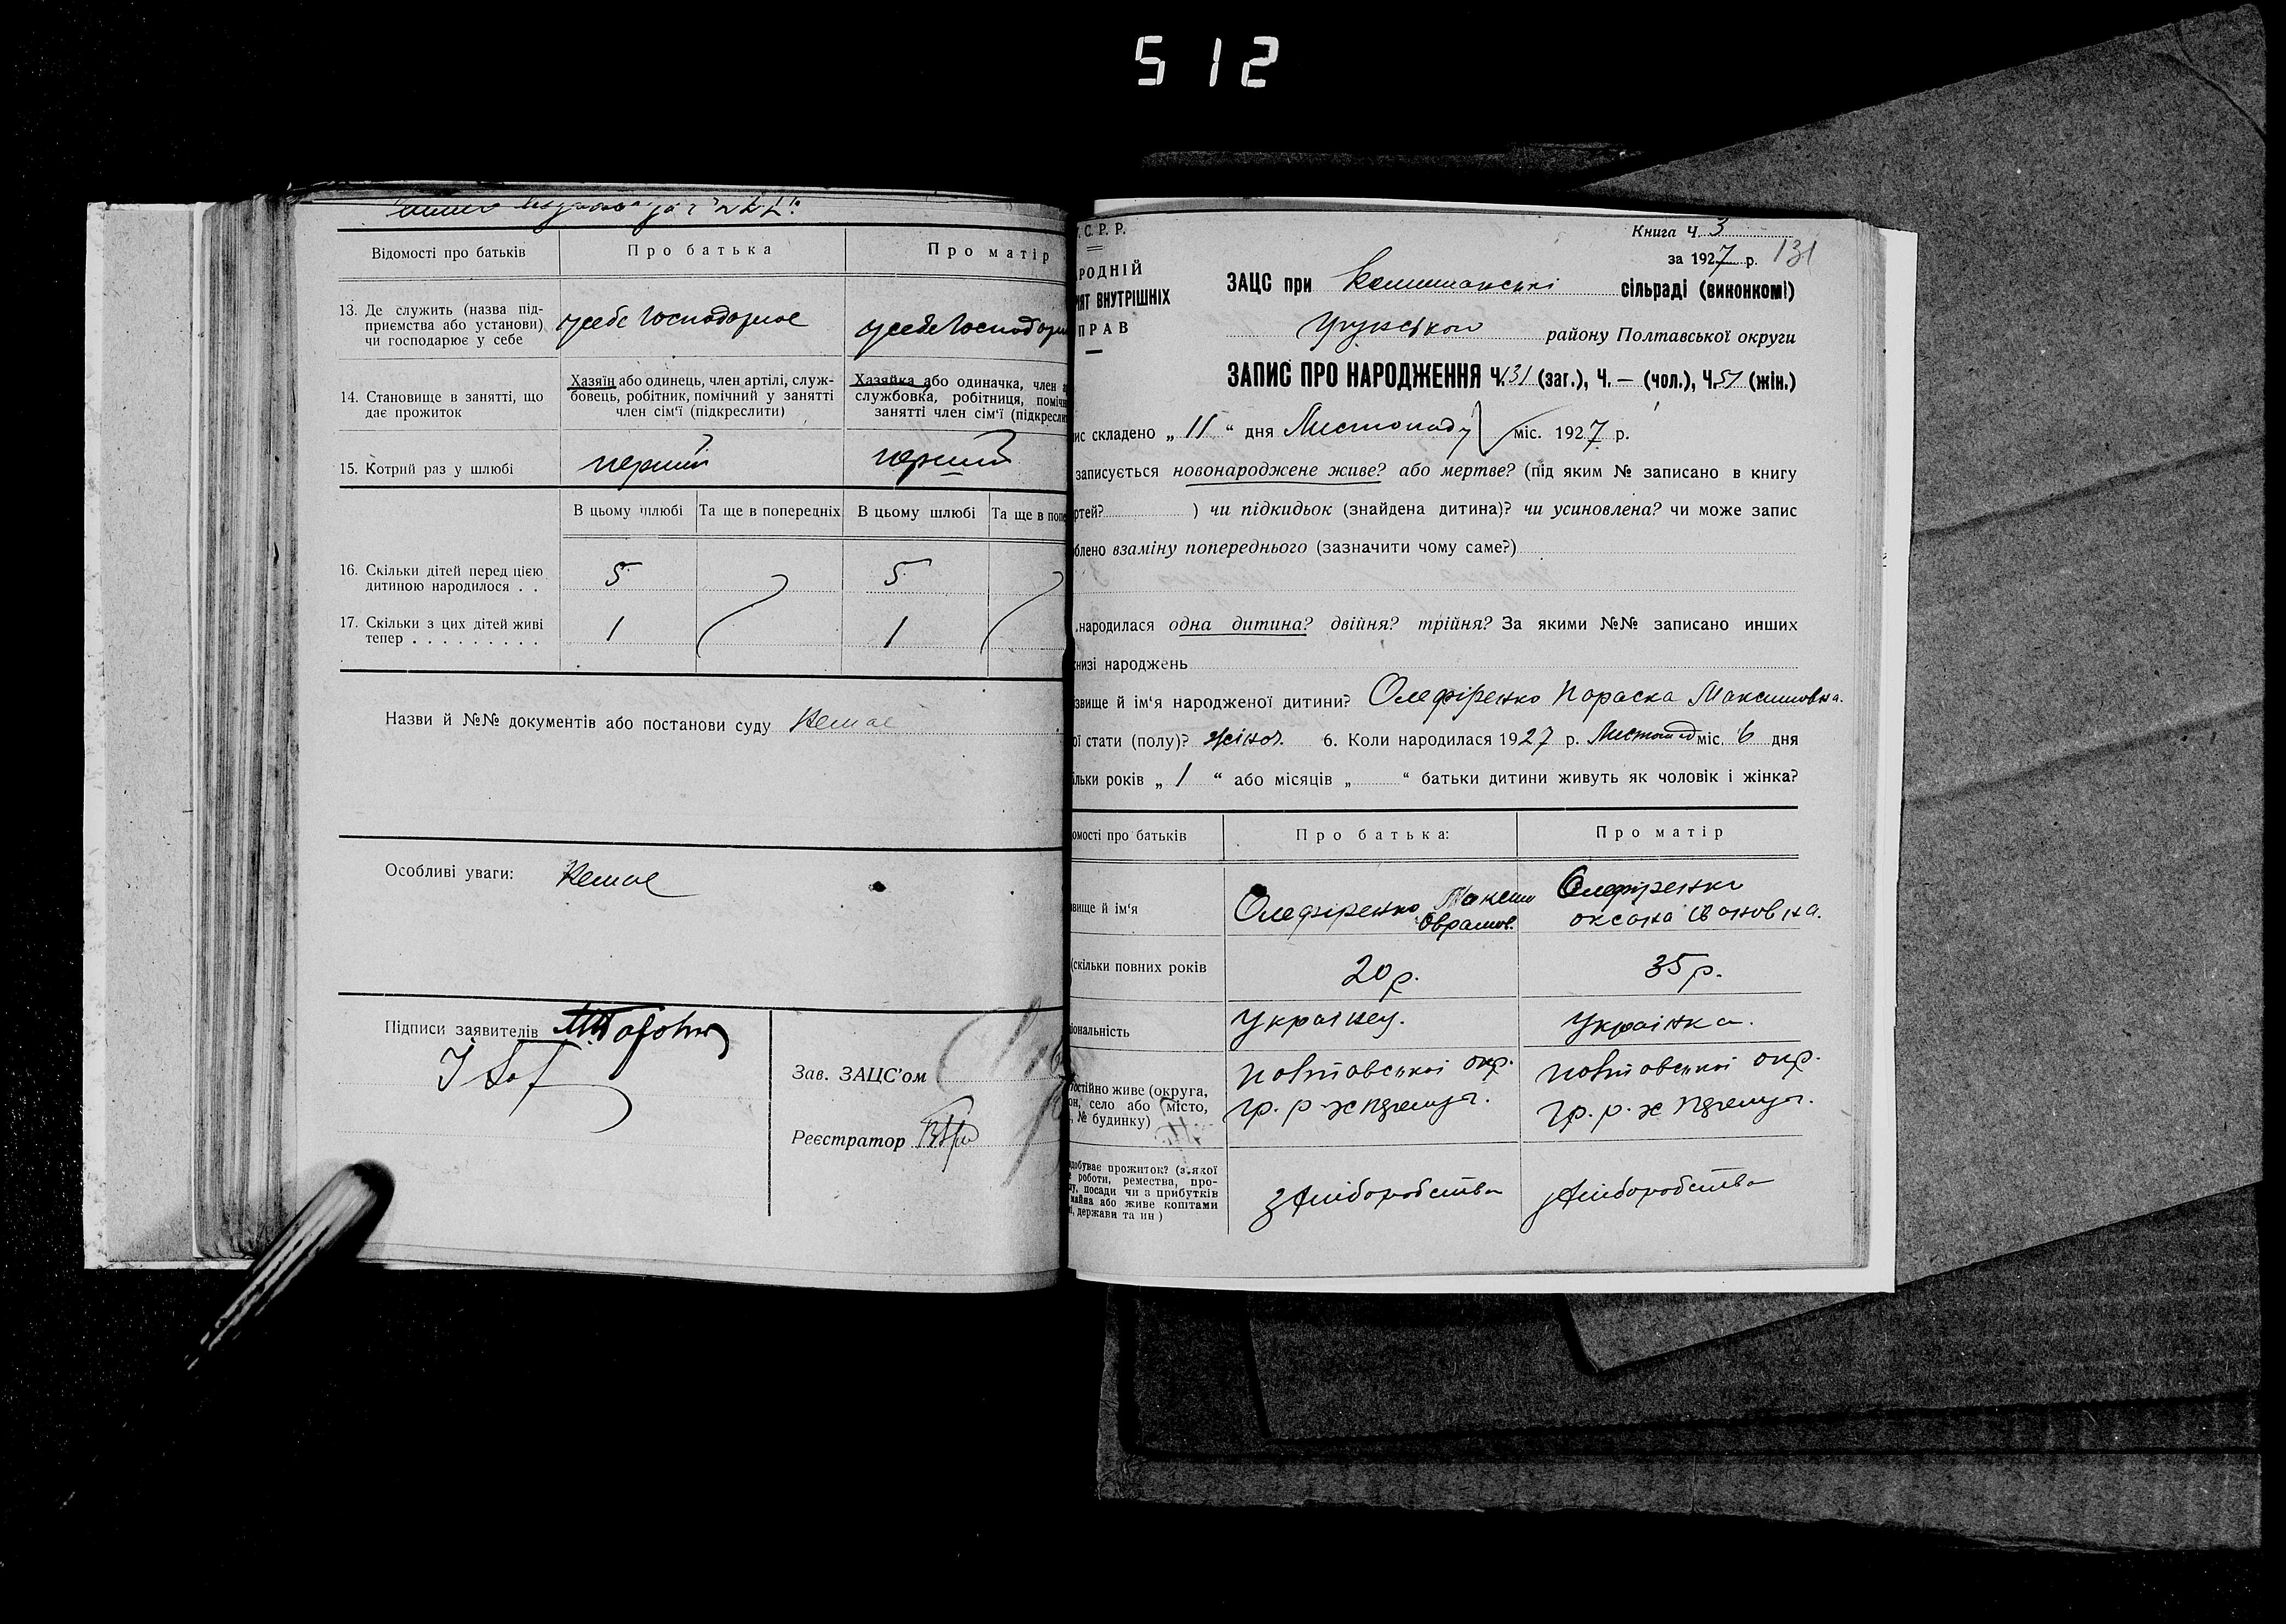 512
Відомості про батьків
Про батька
Про матір
13. Де служить (назва під-
приємства або установи)
чи господарює у себе
усебе господарює
усебе господарює
14. Становище в занятті, що
дає прожиток
Хазяїн або одинець, член артілі, служ-
бовець, робітник, помічний у занятті
член сім'ї (підкреслити)
Хазяйка або одиначка, член
службовка, робітниця, поміч
занятті член сім'ї (підкресли
15. Котрий раз у шлюбі
перший
перший
В цьому шлюбі
Та ще в попередніх
В цьому шлюбі
Та ще в попе
16. Скільки дітей перед цією
дитиною народилося . .
5
5
17. Скільки з цих дітей живі
тепер . . . . . . . . .
1
1
Назви й №№ документів або постанови суду Немає
Особливі уваги: Немає
Підписи заявителів
Зав. ЗАЦС'ом
Реєстратор
С. Р. Р.
РОДНІЙ
ЯТ ВНУТРІШНІХ
ПРАВ
Книга Ч. 3
за 1927 р. 131
ЗАЦС при сільраді (виконкомі)
району Полтавської округи
ЗАПИС ПРО НАРОДЖЕННЯ Ч. 131 (заг.), Ч. — (чол.), Ч. 51 (жін.)
ис складено „ 11 “ дня Листопаду міс. 1927 р.
записується новонароджене живе? або мертве? (під яким № записано в книгу
ртей? ) чи підкидьок (знайдена дитина)? чи усиновлена? чи може запис
блено взаміну попереднього (зазначити чому саме?)
народилася одна дитина? двійня? трійня? За якими №№ записано инших
низі народжень
звище й ім'я народженої дитини? Олефіренко Параска Максимовна.
ої стати (полу)? жіноч. 6. Коли народилася 1927 р. Листопад міс. 6 дня
ільки років „ 1 “ або місяців „ “ батьки дитини живуть як чоловік і жінка?
омості про батьків
Про батька:
Про матір
звище й ім'я
Олефіренко Максим
Оврамов.
Олефіренко
Оксана Івановна.
(скільки повних років
20 р.
35 р.
іональність
Українец.
Українка.
остійно живе (округа,
он, село або місто,
, № будинку)
Полтавської окр.
Полтавської окр.
добуває прожиток? (з якої
роботи, ремества, про-
у, посади чи з прибутків
майна або живе коштами
і, держави та ин )
з хліборобства
з хліборобства